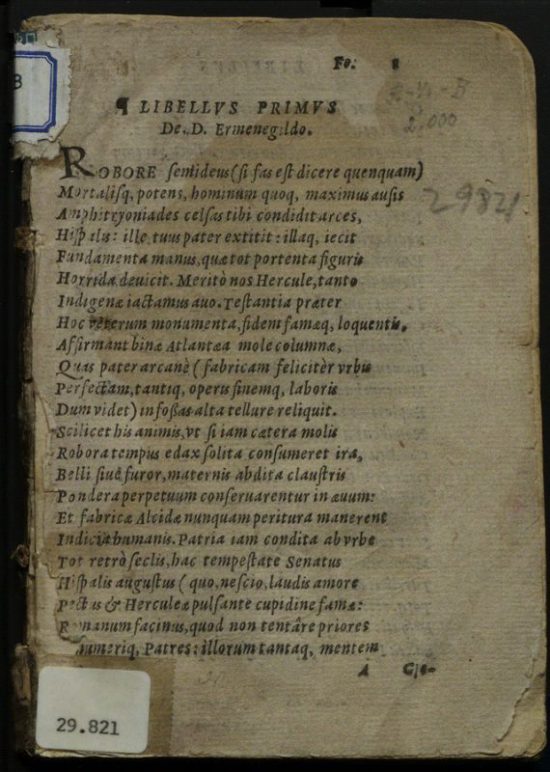 B
Fo: 1
2-4-B
2.000
29821
¶ LIBELLVS PRIMVS
De. D. Ermenegildo.
ROBORE semideus (si fas est dicere quenquam)
Mortalisq, potens, hominum quoq, maximus ausis
Amphitryoniades celsas tibi condidit arces,
Hispalis: ille tuus pater extitit: illaq, iecit
Fundamenta manus, quæ tot portenta figuris
Horrida deuicit. Meritò nos Hercule, tanto
Indigenæ iactamus auo. Testantia præter
Hoc veterum monumenta, fidem famæq, loquentis,
Affirmant binæ Atlantæa mole columnæ,
Quas pater arcanè (fabricam felicitèr vrbis
Perfectam, tantiq, operis finemq, laboris
Dum videt) in fossas alta tellure reliquit.
Scilicet his animis, vt si iam cætera molis
Robora tempus edax solita consumeret ira,
Belli siuè furor, maternis abdita claustris
Pondera perpetuum conseruarentur in æuum:
Et fabricæ Alcidæ nunquam peritura manerent
Indicia humanis. Patria iam condita ab vrbe
Tot retrò seclis, hac tempestate Senatus
Hispalis augustus (quo, nescio, laudis amore
Pectus & Herculeæ pulsante cupidine famæ:
Romanum facinus, quod non tentâre priores
numeriq, Patres: illorum tantaq, mentem
A
29.821